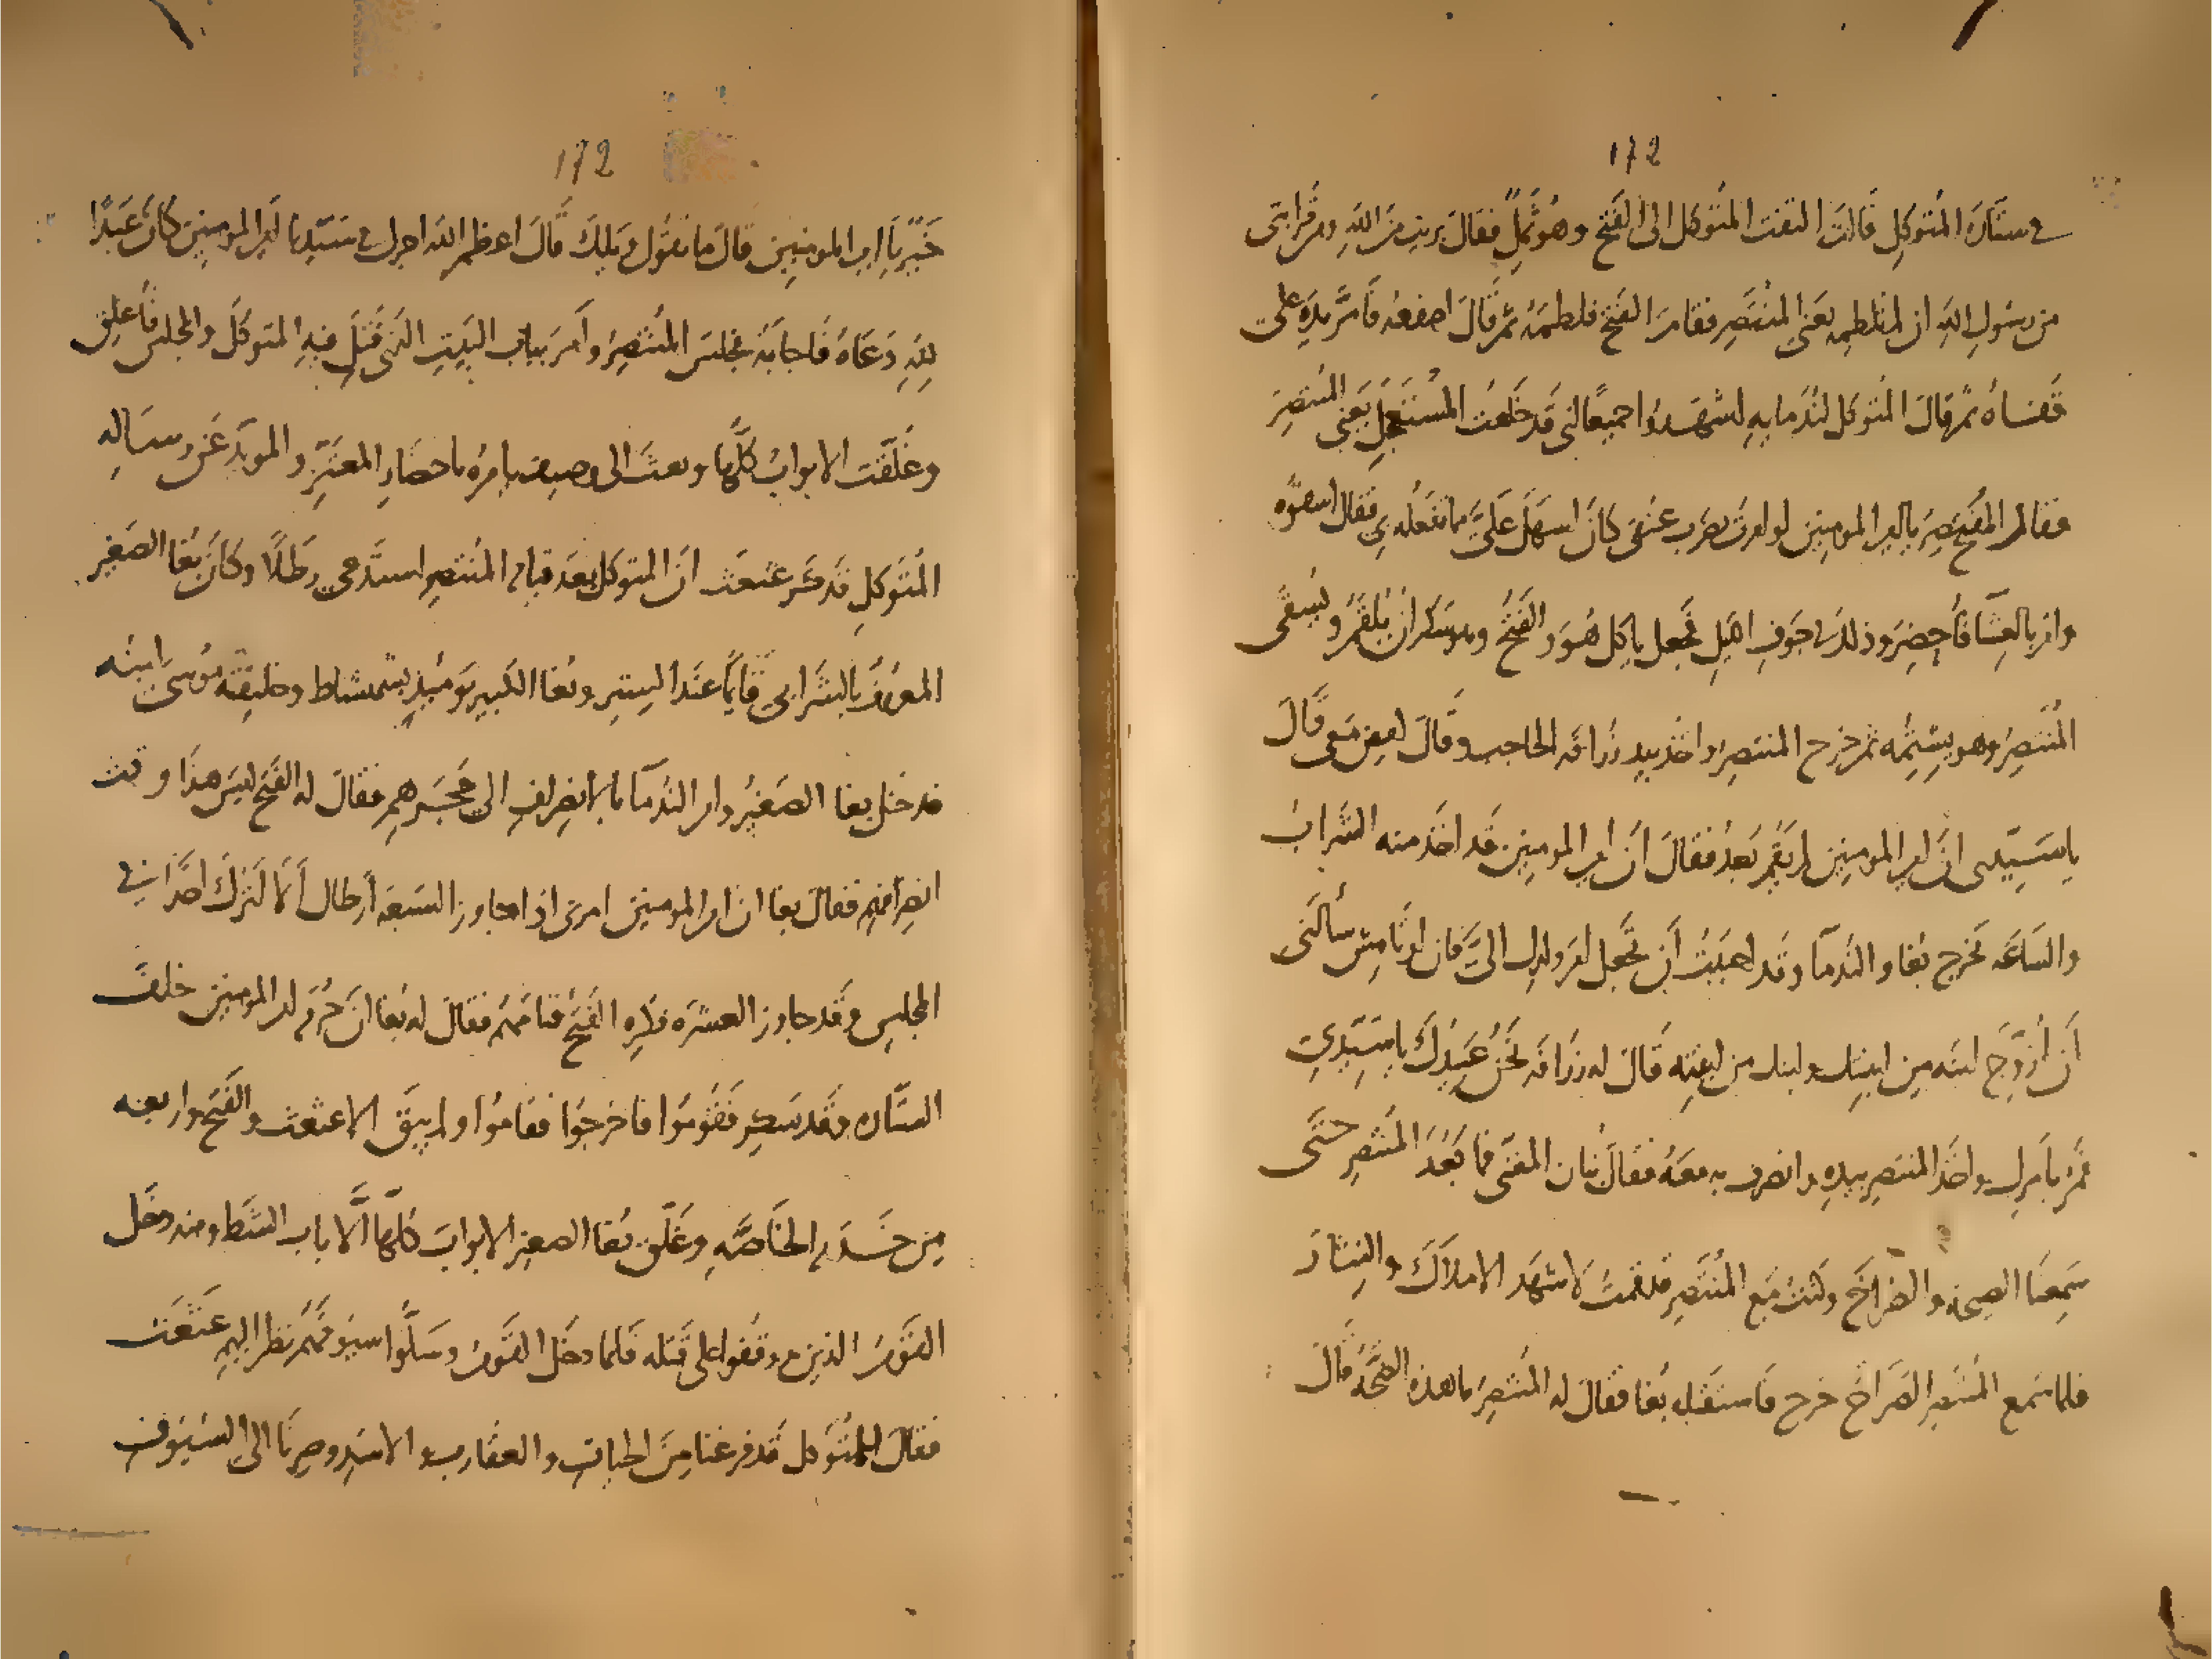 172
في ستارة المتوكل قالت التفت المتوكل الى الفتح وهو ثمل فقال بريت من الله ومن قرابتي
من رسول الله ان لم تلطمه يعني المنتصر فقام الفتح فلطمه ثم قال اصفعه فامر يده على
قفاه ثم قال المتوكل لندمايه اشهدوا جميعا اني قد خلعت المستعجل يعني المنتصر
فقال المنتصر يا امير المومنين لو امرت بضرب عنقي كان اسهل علي مما تفعله بي فقال اسقوه
وامر بالعشا فاحضر وذلك في جوف الليل فجعل ياكل هو والفتح وهو سكران يلقم ويسقى
المنتصر وهو يشتمه ثم خرج المنتصر واخذ بيد زرافه الحاجب وقال امض معي قال
يا سيدي ان امير المومنين لم يقم بعد فقال ان امير المومنين قد اخذ منه الشراب
والساعه يخرج بغا والندما وقد احببت ان تجعل امر ولدك الي فان اوتامش سالني
ان ازوج ابنه من ابنتك وابنك من ابنته قال له زرافه نحن عبيدك يا سيدي
فمر بامرك واخذ المنتصر بيده وانصرف به معه فقال بنان المغني فما بعد المنتصر حتى
سمعنا الصيحه والصراخ وكنت مع المنتصر قد قمت لاشهد الاملاك والنثار
فلما سمع المنتصر الصراخ خرج فاستقبله بغا فقال له المنتصر ما هذه الضجة قال
172
خير يا امير المومنين قال ما تقول ويلك قال اعظم الله اجرك في سيدنا امير المومنين كان عبدا
لله دعاه فاجابه فجلس المنتصر وامر بباب البيت الذي قتل فيه المتوكل والمجلس فاغلق
وغلقت الابواب كلها وبعث الى وصيف يامره باحضار المعتز والمويد عن رساله
المتوكل قد ذكر عثعث ان المتوكل بعد قيام المنتصر استدعى رطلا وكان بغا الصغير
المعروف بالشرابي قايما عند الستر وبغا الكبير يوميذ بشمشاط وخليفته موسى ابنه
فدخل بغا الصغير وامر الندما بالانصراف الى حجرهم فقال له الفتح ليس هذا وقت
انصرافهم فقال بغا ان امير المومنين امرني اذا جاوز السبعه ارطال الا اترك احدا في
المجلس وقد جاوز العشره فكره الفتح قيامهم فقال له بغا ان حرم امير المومنين خلف
الستاره وقد سكر فقوموا فاخرجوا فقاموا ولم يبق الا عثعث والفتح واربعه
من خدم الخاصه وغلق بغا الصغير الابواب كلها الا باب الشط ومنه دخل
القوم الذين وقفوا على قتله فلما دخل القوم وسلوا سيوفهم نظر اليهم عثعث
فقال للمتوكل قد فرغنا من الحيات والعقارب والاسد وصرنا الى السيوف